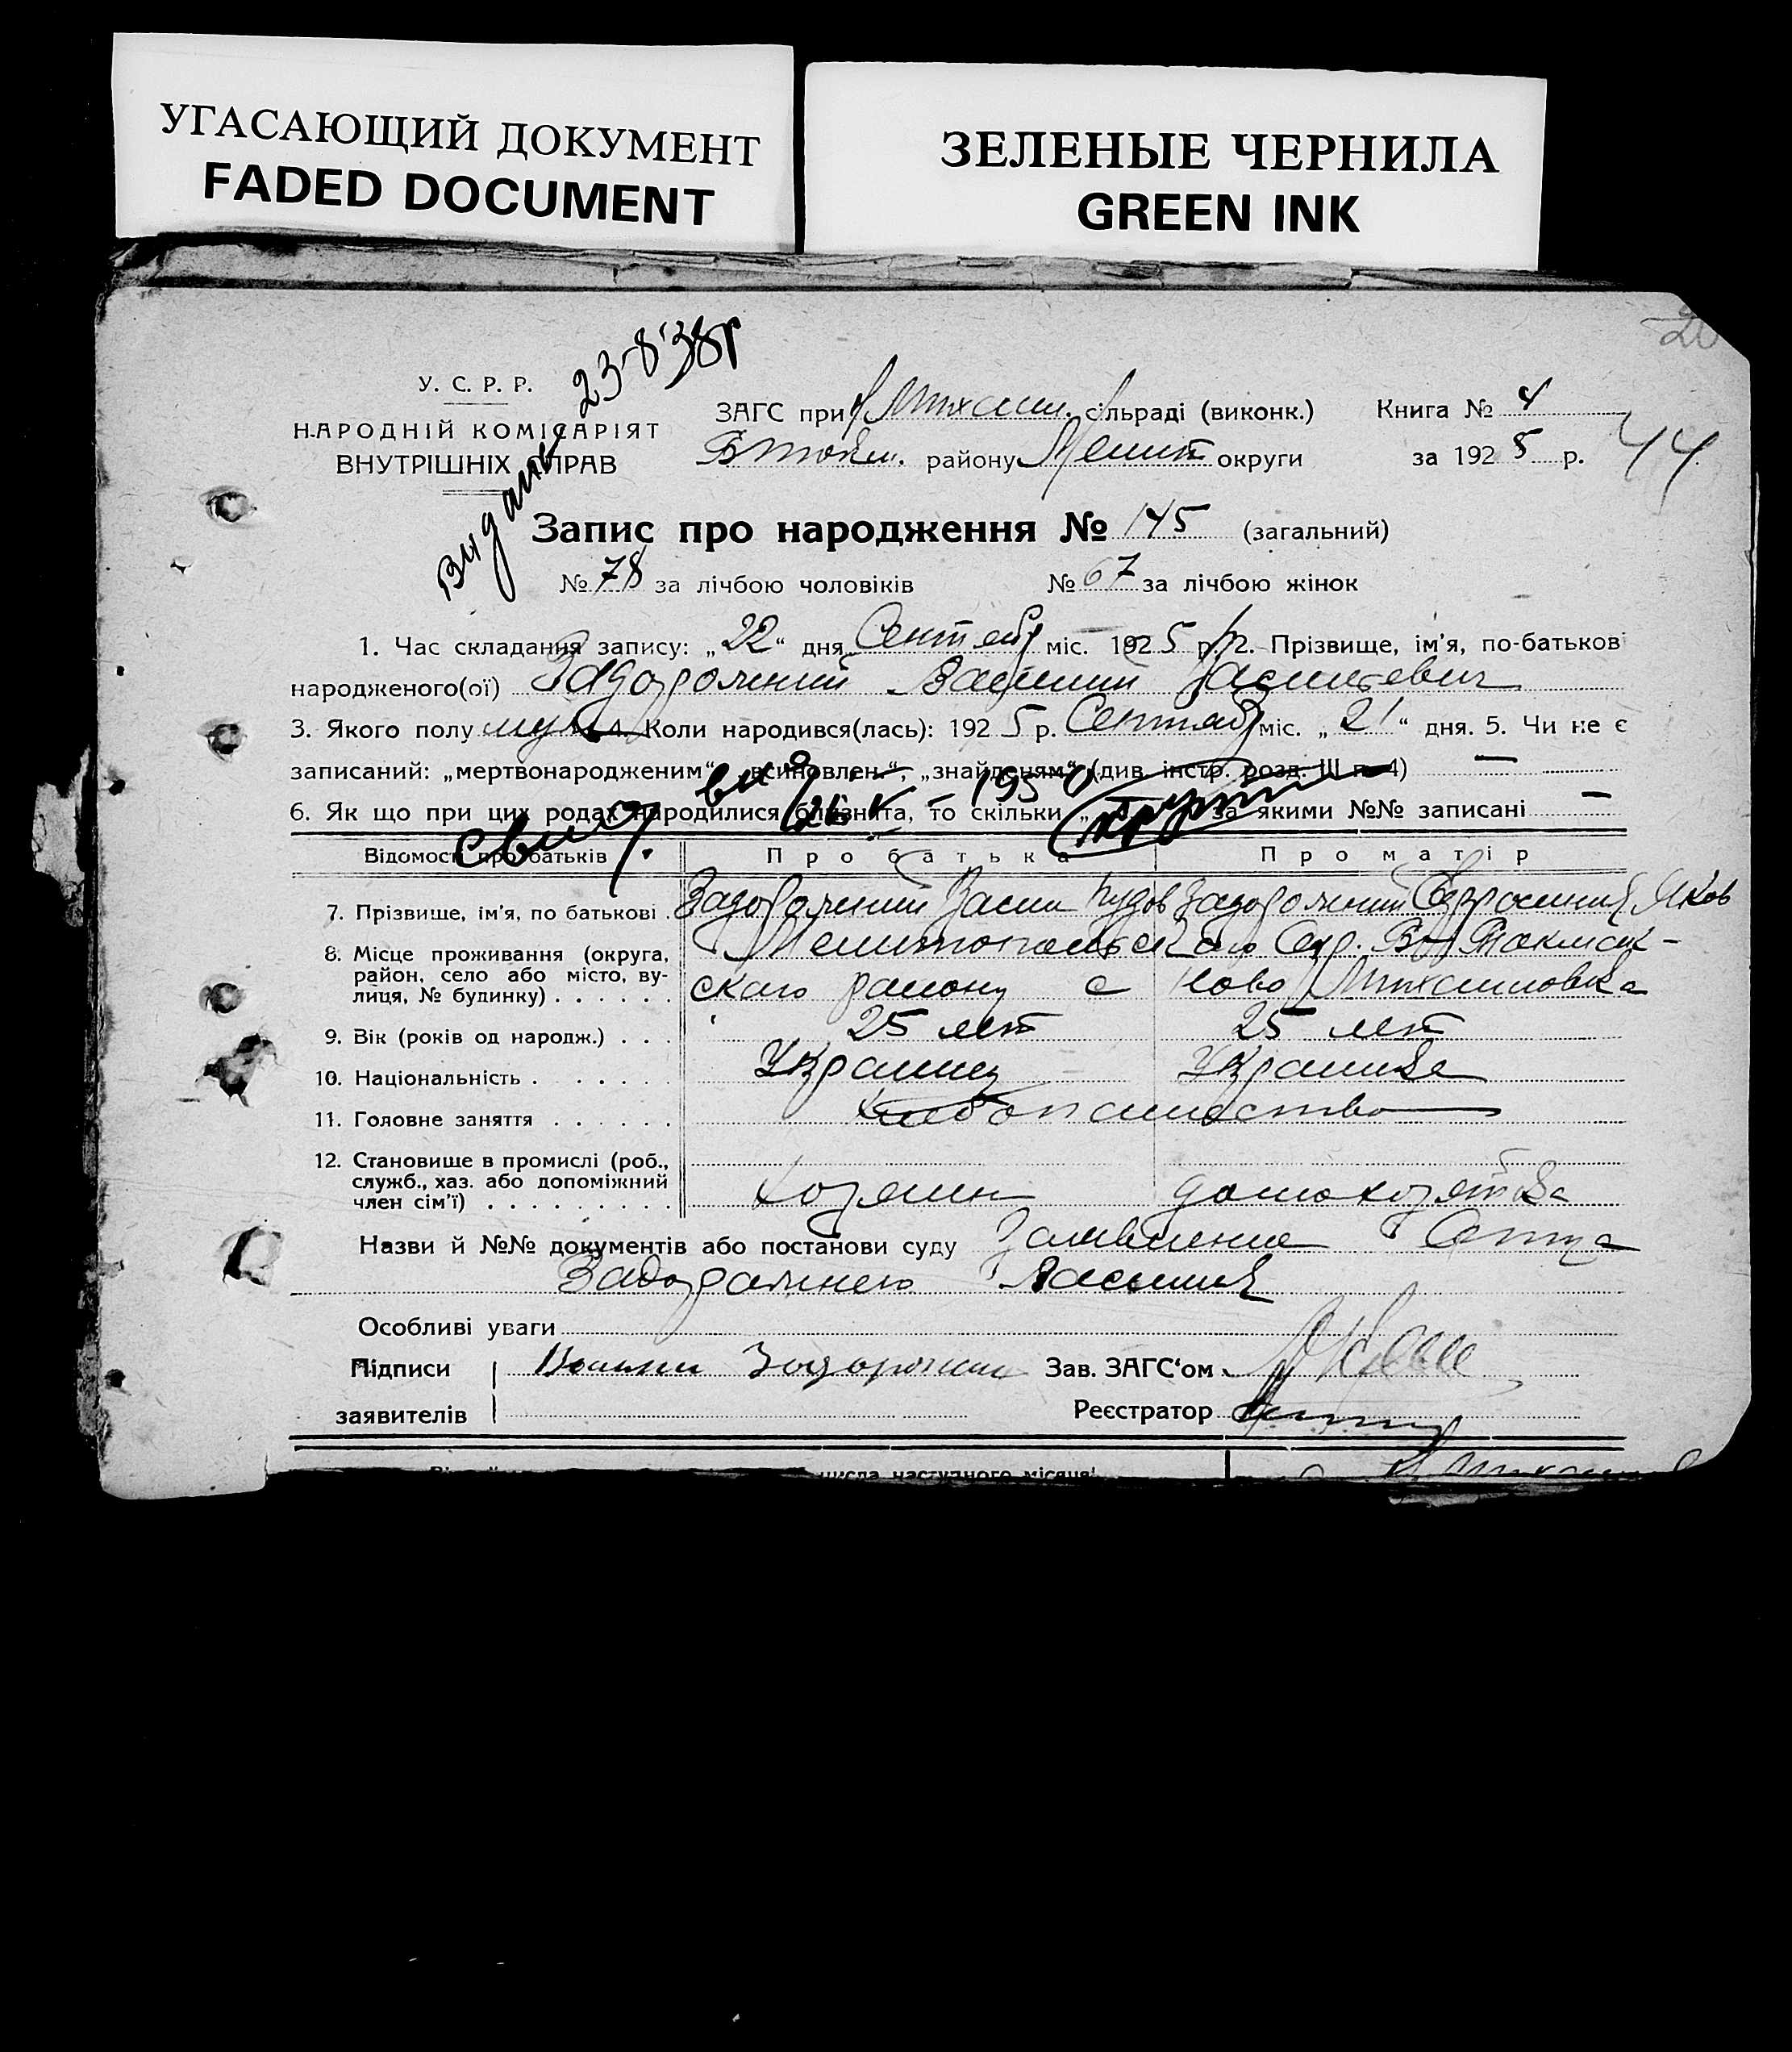 УГАСАЮЩИЙ ДОКУМЕНТ
FADED DOCUMENT
ЗЕЛЕНЫЕ ЧЕРНИЛА
GREEN INK
20
У. С. Р. Р.
НАРОДНІЙ КОМІСАРІЯТ
ВНУТРІШНІХ СПРАВ
23-8-38г
ЗАГС при Михайл. сільраді (виконк.)
Книга № 4
району Мелит округи
за 1925 р.
44
Запис про народження № 145 (загальний)
№ 78 за лічбою чоловіків № 67 за лічбою жінок
1. Час складання запису: „22“ дня Сентябр міс. 1925 р. 2. Прізвище, ім'я, по-батькові
народженого(ої) Задорожний Василий Васильевич
3. Якого полу муж 4. Коли народився(лась): 1925 р. Сентябр міс. „21“ дня. 5. Чи не є
записаний: „мертвонародженим“, „всиновлен.“, „знайденям“ (див. інстр. розд. III п. 4) —
6. Як що при цих родах народилися близнята, то скільки за якими №№ записані —
свид. 1950
Відомості про батьків Про батька Про матір
7. Прізвище, ім'я, по батькові . Задорожний Васил Задорожний Яков
8. Місце проживання (округа, район, село або місто, вулиця, № будинку) . . . . . . Мелитопольского Окр. Токмакского району с Ново Михайловка
9. Вік (років од народж.) . . . 25 лет 25 лет
10. Національність . . . . . . Украинец Украинка
11. Головне заняття . . . . . . Хлебопашество
12. Становище в промислі (роб., служб., хаз. або допоміжний член сім'ї) . . . . . . . . . Хозяин домохозяйка
Назви й №№ документів або постанови суду Заявление Отца
Задорожнего Василия
Особливі уваги
Підписи заявителів Задорожний
Зав. ЗАГС'ом
Реєстратор
числа наступного місяця